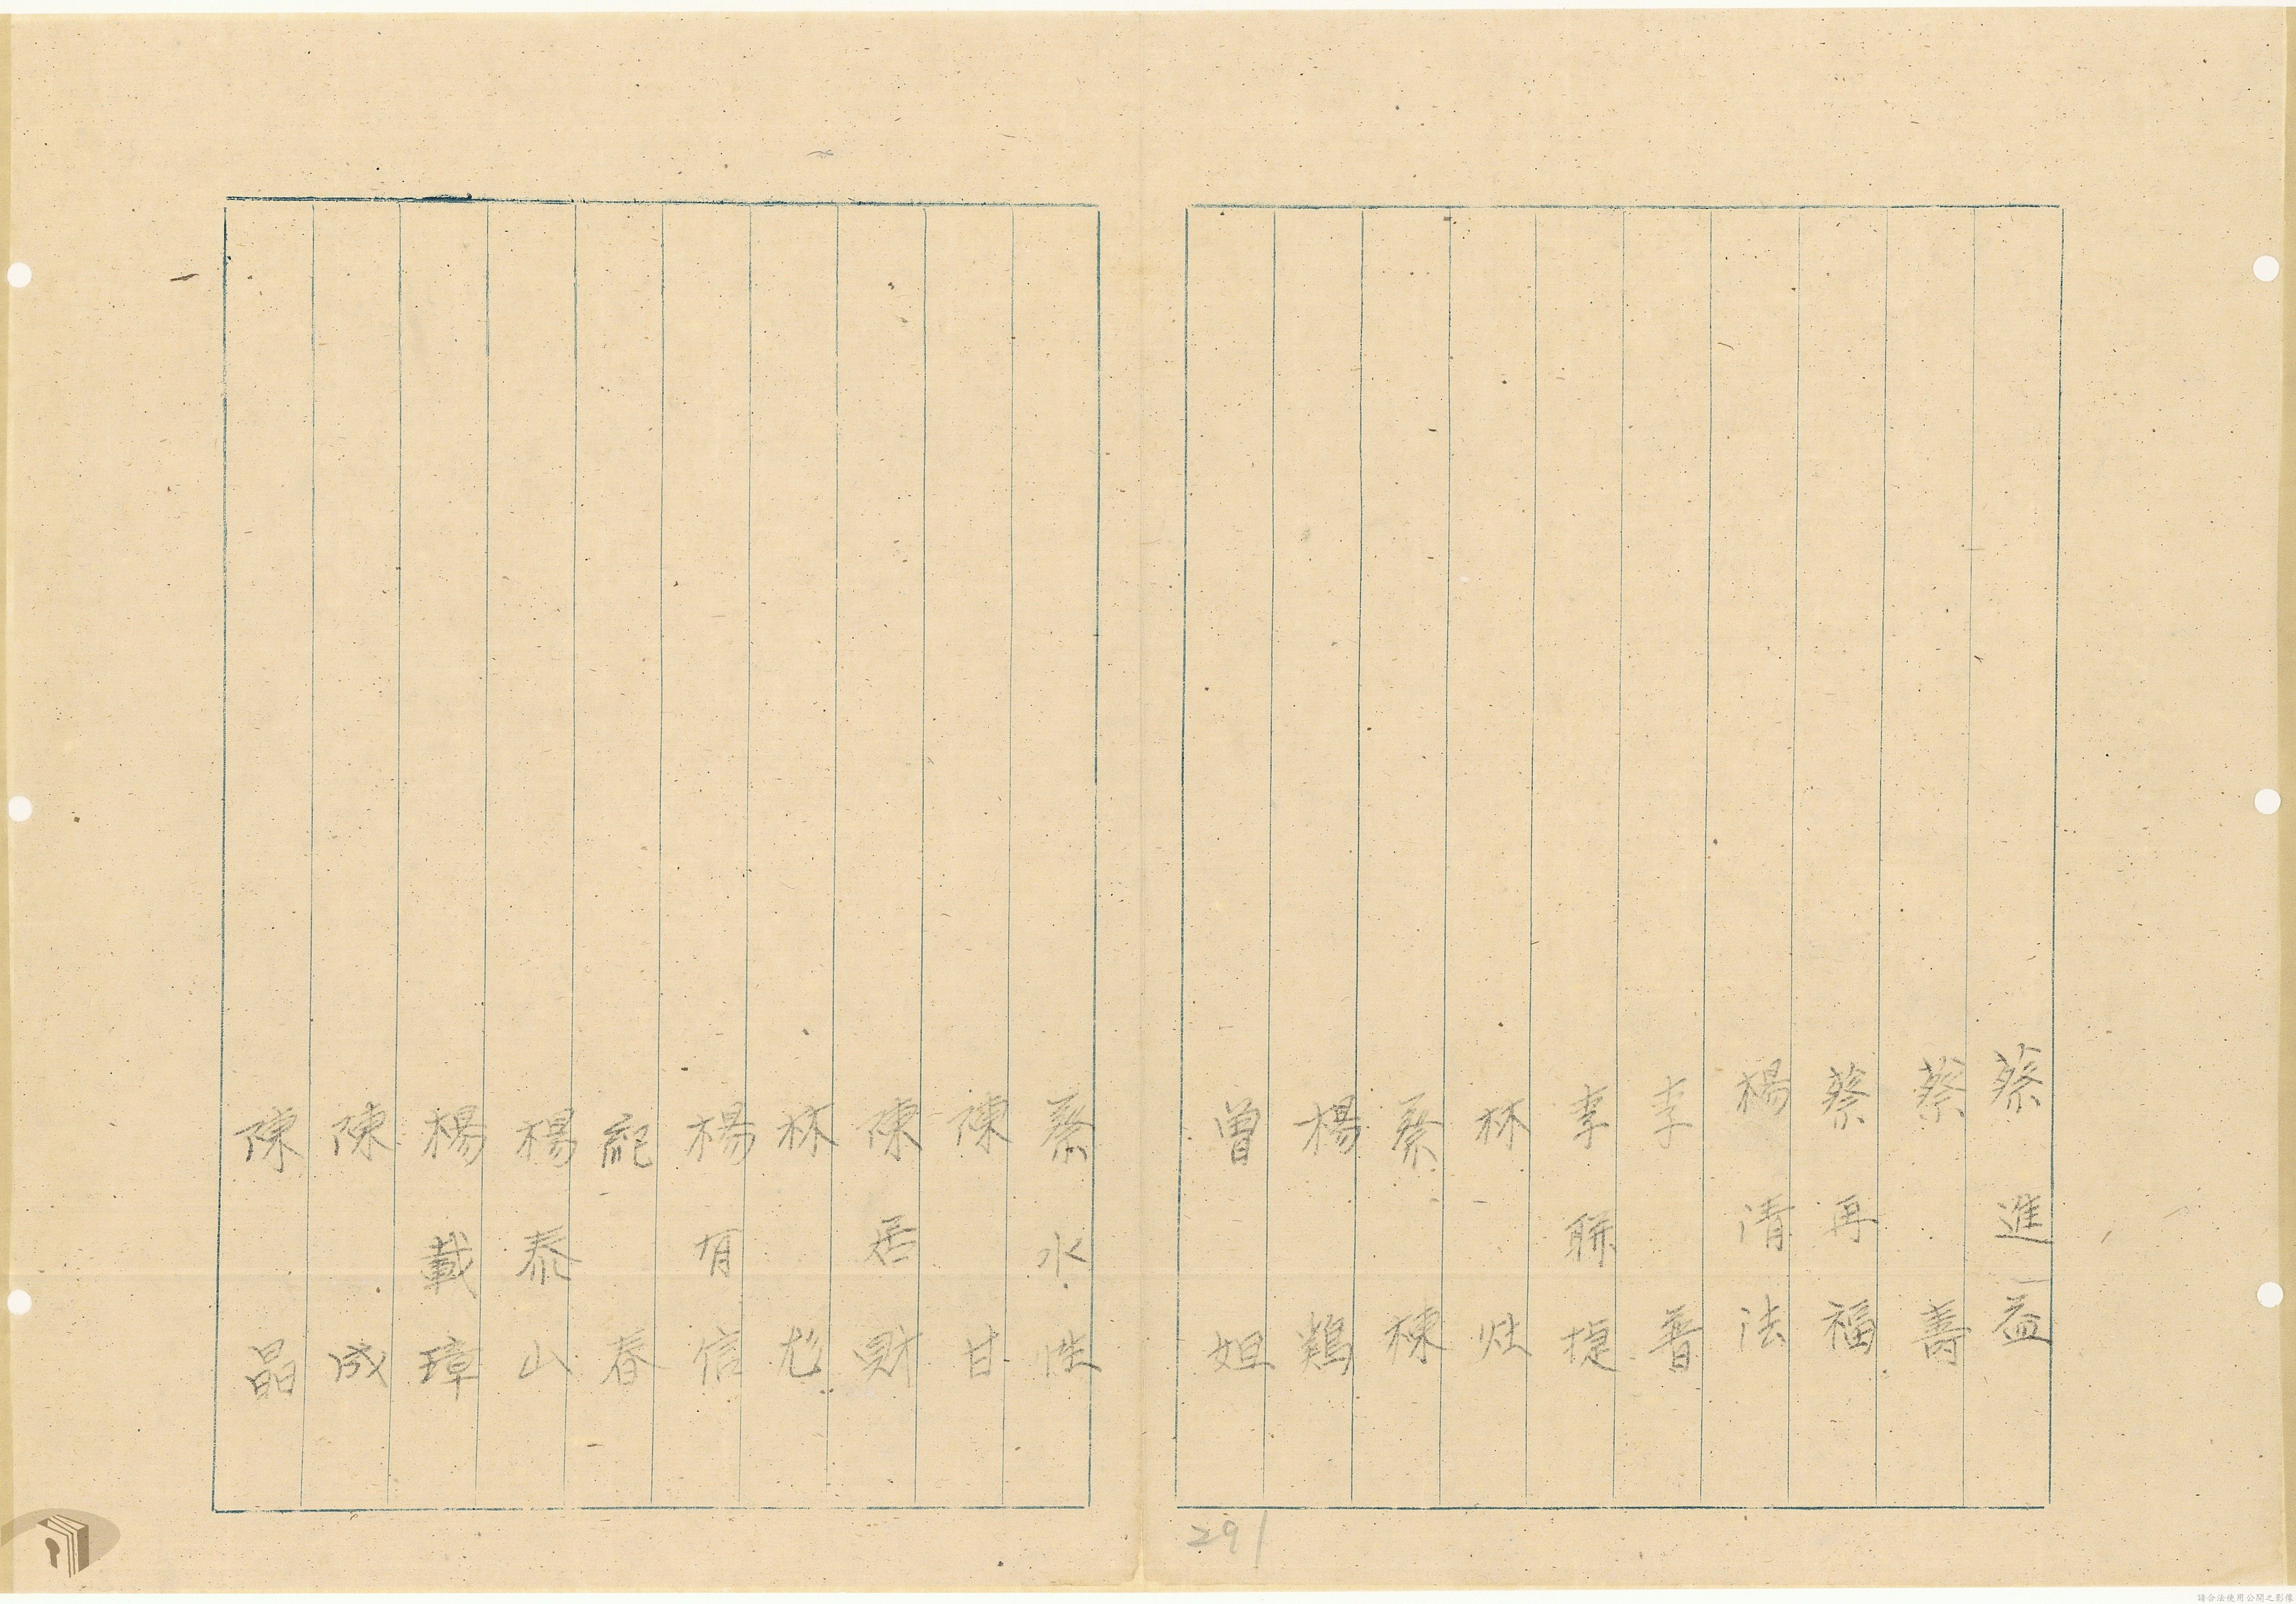 蔡進益
蔡壽
蔡再福
楊清法
李普
李聯捷
林灶
蔡棟
楊鷄
曾妲
蔡水性
陳甘
陳居財
林尨
楊有信
紀春
楊泰山
楊載璋
陳成
陳晶
291
請合法使用公開之影像